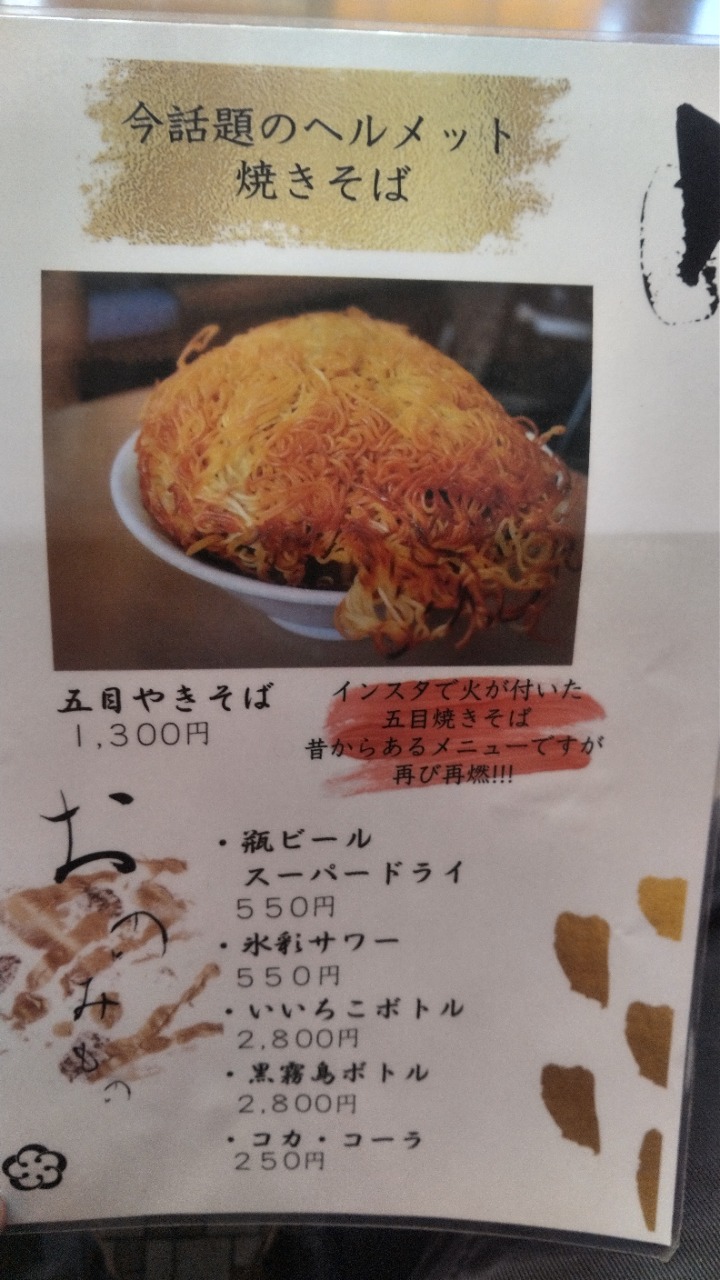 今話題のヘルメット
焼きそば
五目やきそば
1,300円
インスタで火が付いた
五目焼きそば
昔からあるメニューですが
再び再燃!!!
おのみもの
・瓶ビール
スーパードライ
550円
・氷彩サワー
550円
・いいちこボトル
2,800円
・黒霧島ボトル
2,800円
・コカ・コーラ
250円